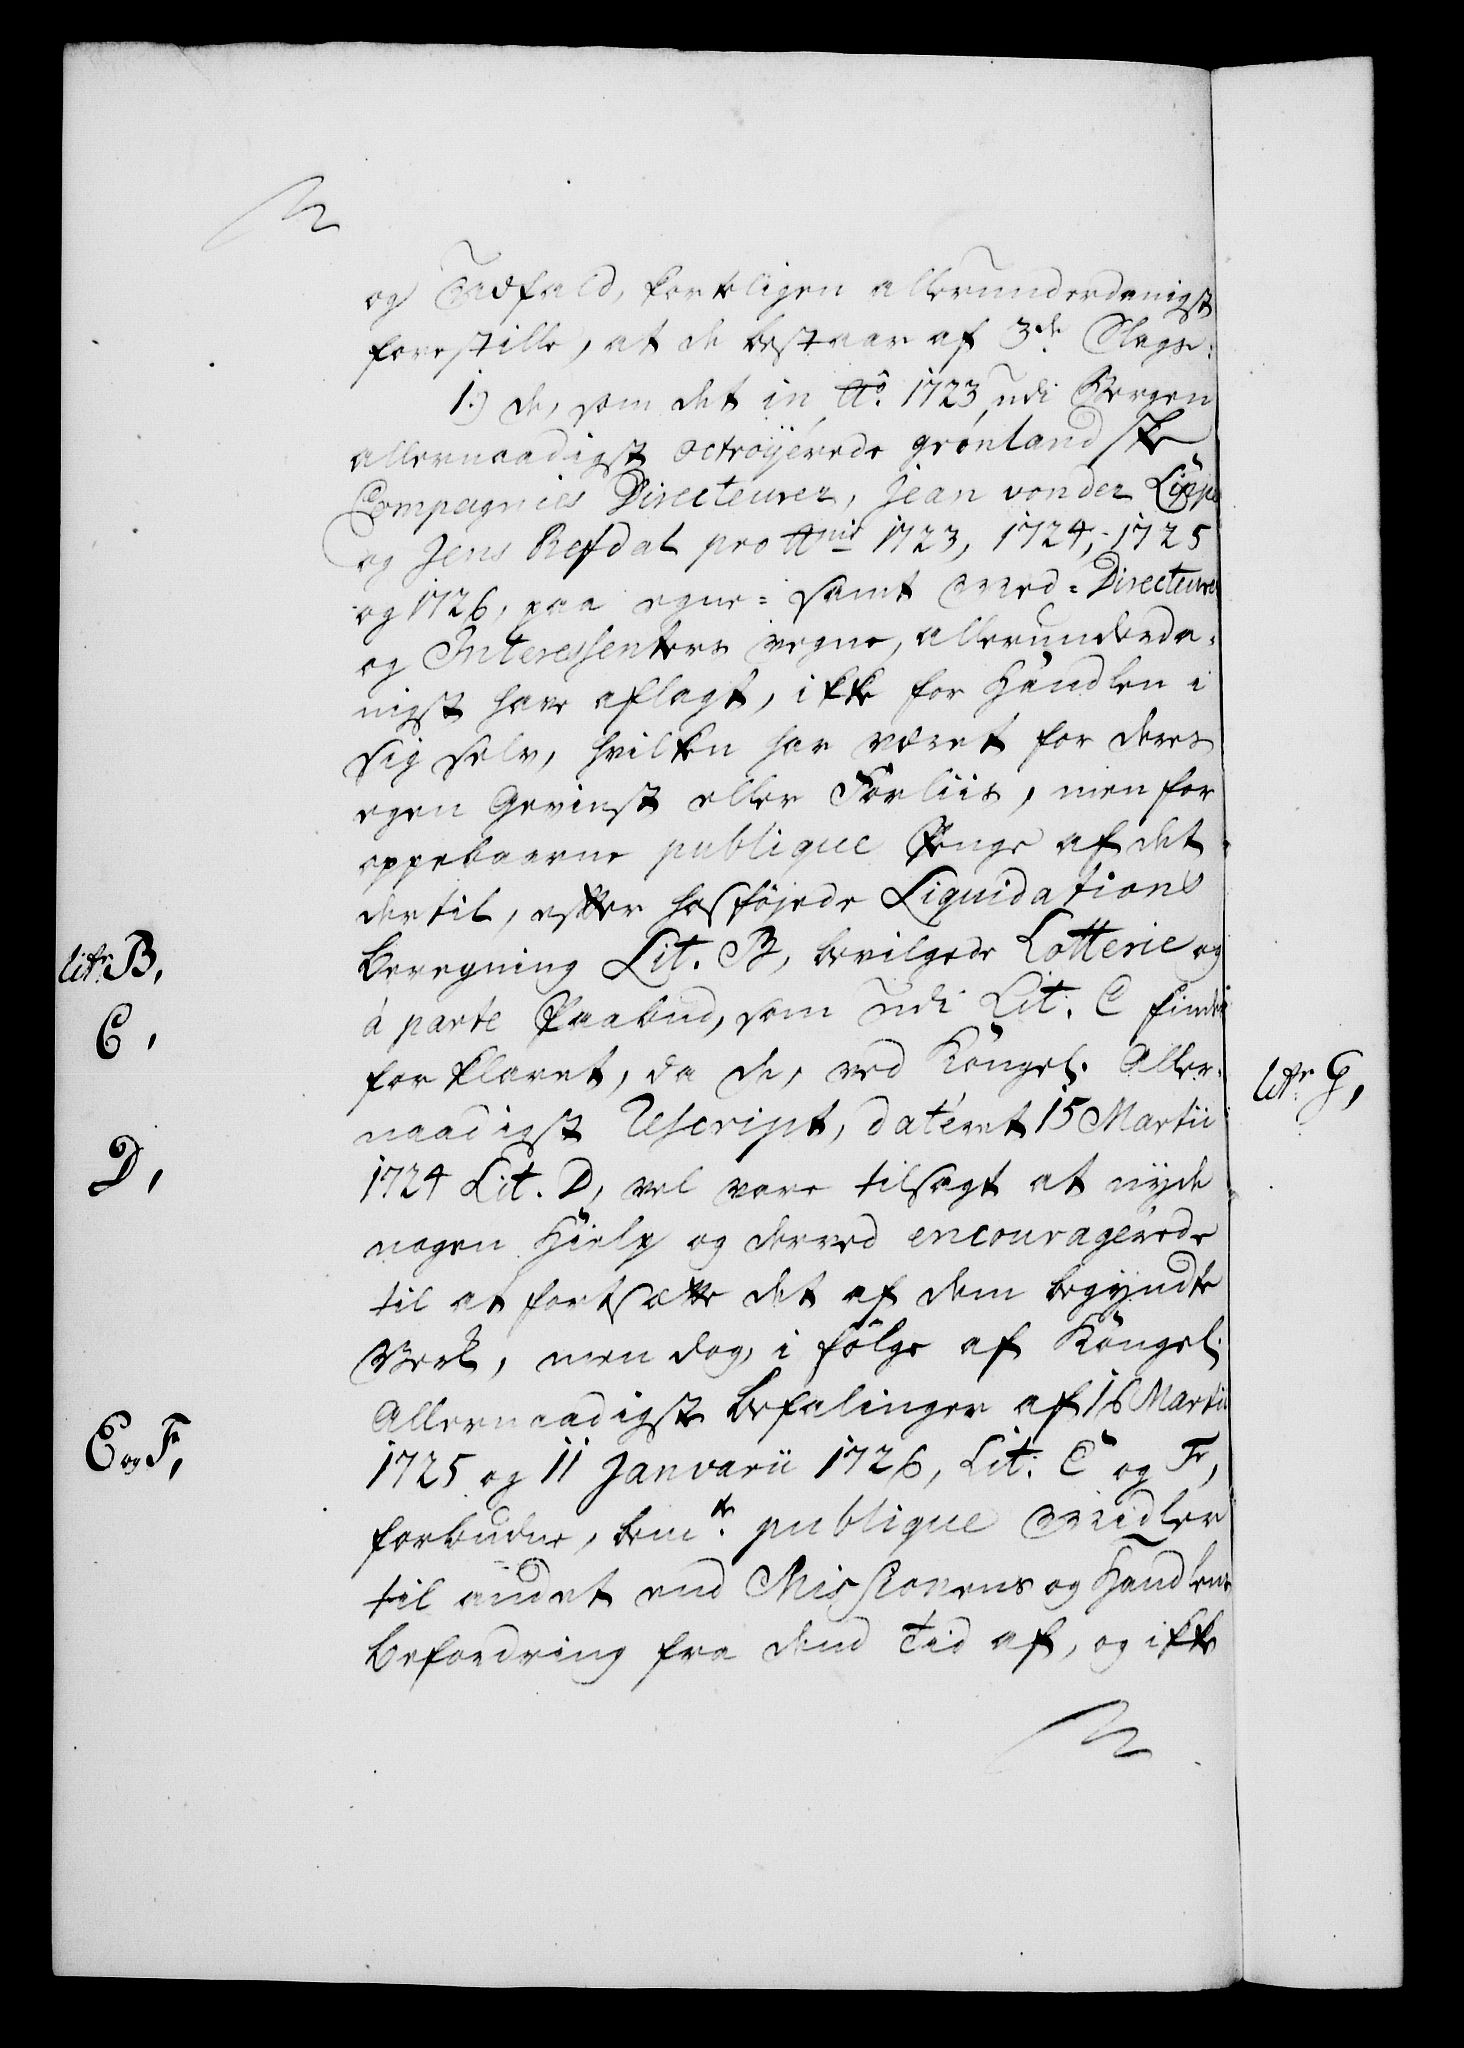 og Udfald, korteligen allerunderdanigst
forestille, at de bestaar af 3de Slags:
1.) de, som det in Ao. 1723 udi Bergen
allernaadigst octroijerede grønlandske
Compagnies Directeurer, Jean von der Lippe
og Jens Refdal pro Annis 1723, 1724, 1725
og 1726, paa egne= samt Med=Directeurers
og Interessenters vegne, allerunderda-
nigst have aflagt, ikke for Handlen i
sig selv, hvilken har været for deres
egen Gevinst eller Forliis, men for
oppebaarne publique Penge af det
dertil, efter hosföjede Liquidations
Beregning Lit. B, bevilgede Lotterie og
à parte Paabud, som udi Lit. C findes
forklaret, da de, ved Kongel. Aller-
naadigst Rescript, dateret 15 Martii
1724 Lit. D, vel vare tilsagt at nyde
nogen Hielp og derved encouragerede
til at fortsætte det af dem begyndte
Verk, men dog, i fölge af Kongel.
Allernaadigste Befalinger af 16 Martii
1725 og 11 Januarii 1726, Lit. E og F,
forbudne, bemte. publique Midler
til andet end Missionens og Handlens
Befordring fra dend Tid af, og ikke
litr. B,
C,
D,
E og F,
litr. G,